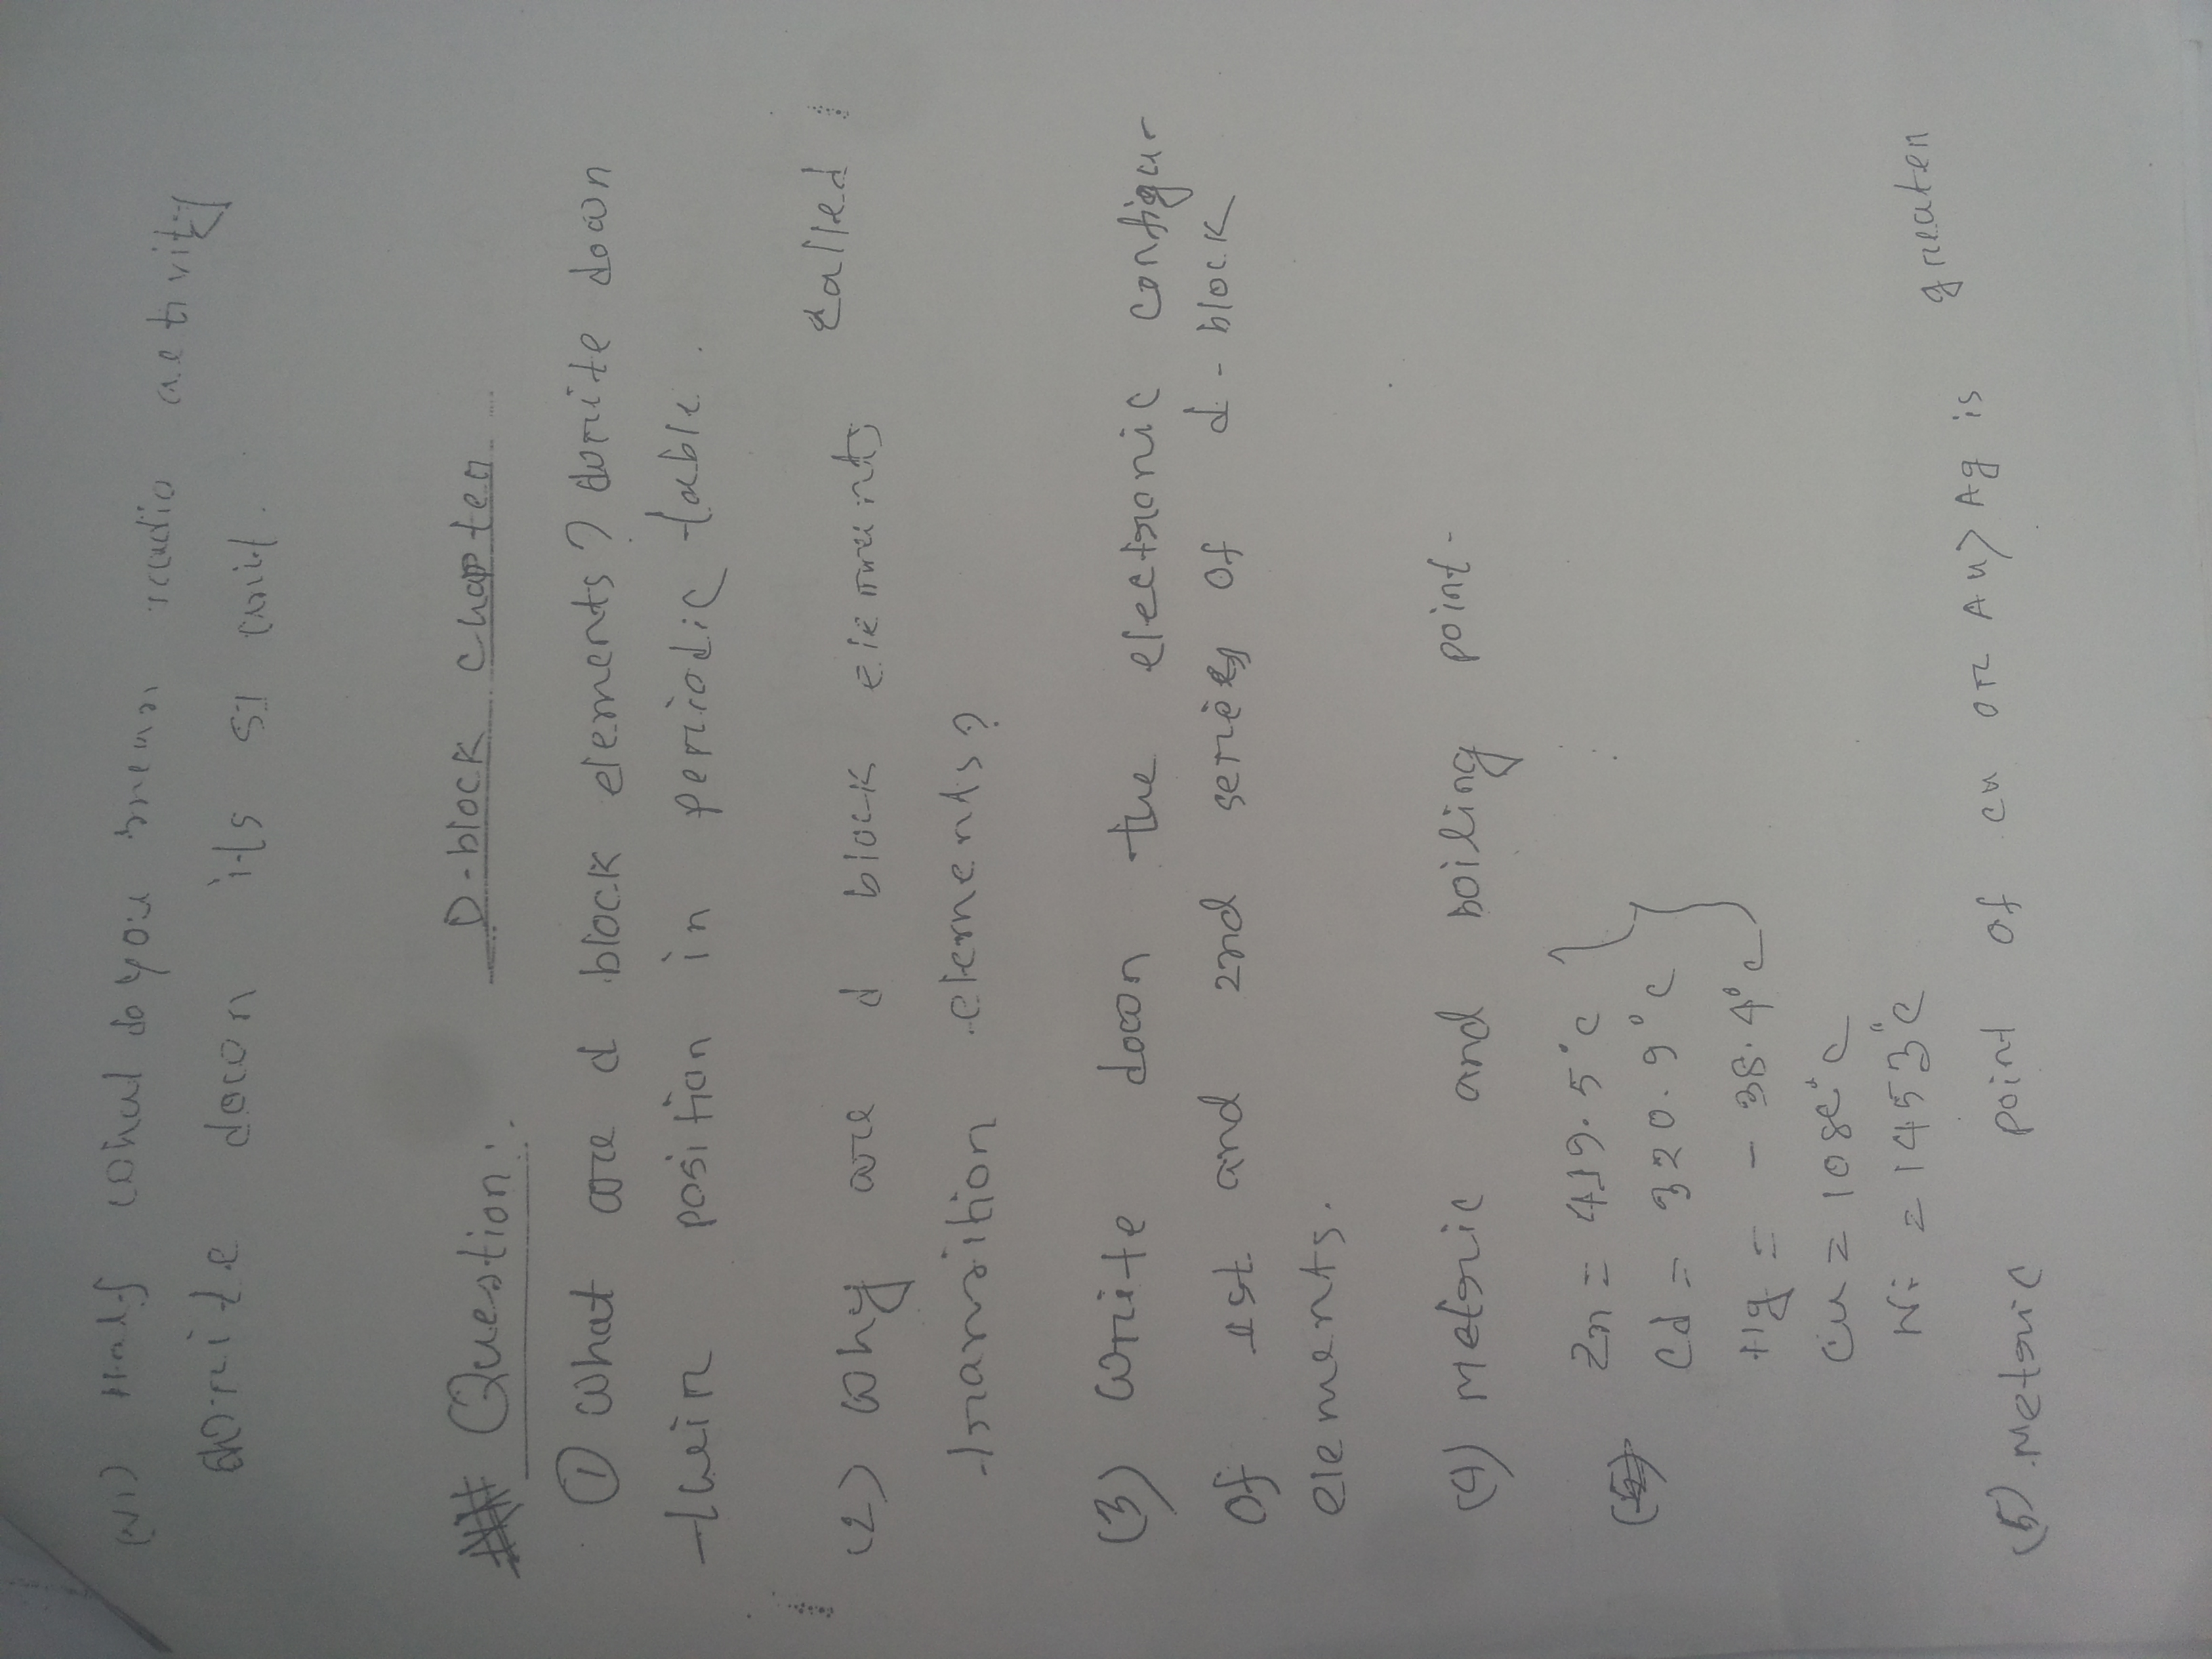 (vi) Half what do you mean radio activity
write down its SI unit.
D-block chapter
## Question:
① what are d block elements? write down
their position in periodic table.
(2) why are d block elements called
transition elements?
(3) write down the electronic configur
of 1st and 2nd series of d-block
elements.
(4) Metric and boiling point-
Zn = 419.5°C
Cd = 320.9°C
Hg = - 38.4°C
Cu = 108°C
Ni = 1453°C
(5) Metric point of cu or Au > Ag is greater